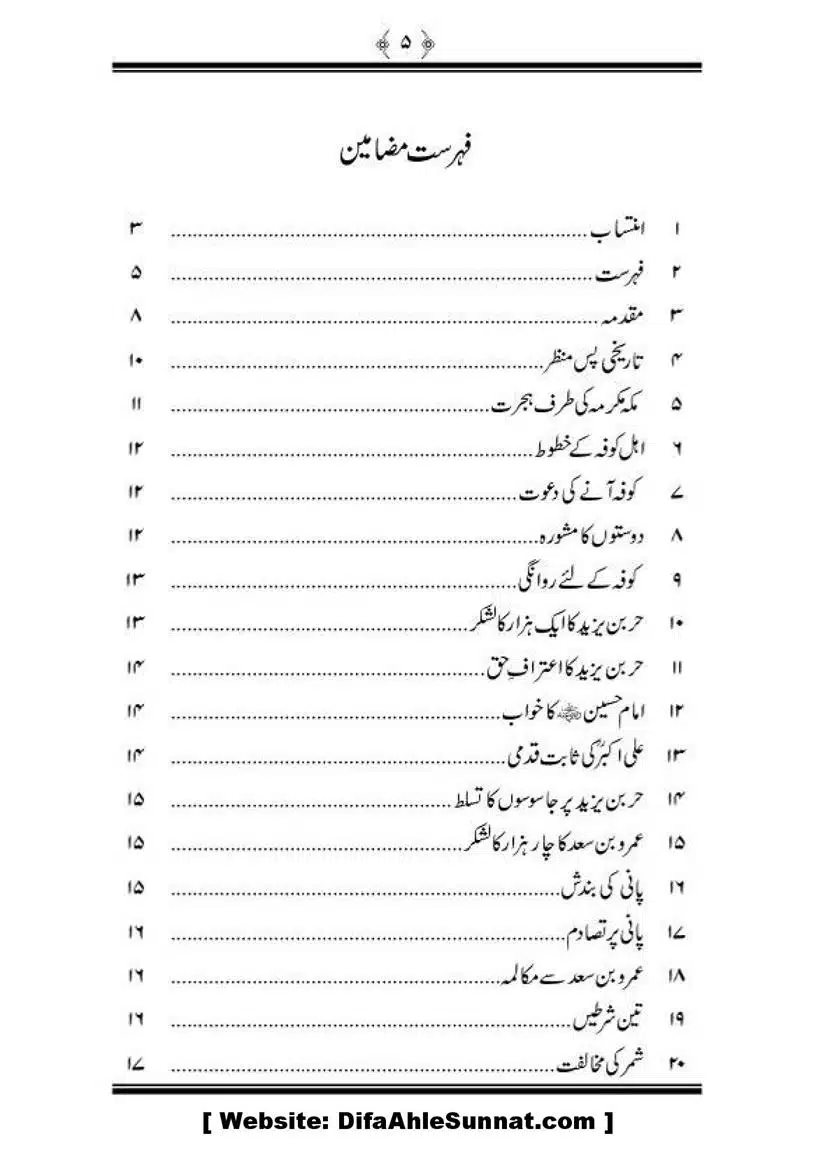 ﴿ ۵ ﴾
فہرست مضامین
۱ انتساب ........ ۳
۲ فہرست ........ ۵
۳ مقدمہ ........ ۸
۴ تاریخی پس منظر ........ ۱۰
۵ مکہ مکرمہ کی طرف ہجرت ........ ۱۱
۶ اہل کوفہ کے خطوط ........ ۱۲
۷ کوفہ آنے کی دعوت ........ ۱۲
۸ دوستوں کا مشورہ ........ ۱۲
۹ کوفہ کے لئے روانگی ........ ۱۳
۱۰ حر بن یزید کا ایک ہزار کا لشکر ........ ۱۳
۱۱ حر بن یزید کا اعترافِ حق ........ ۱۴
۱۲ امام حسین رضی اللہ عنہ کا خواب ........ ۱۴
۱۳ علی اکبرؒ کی ثابت قدمی ........ ۱۴
۱۴ حر بن یزید پر جاسوسوں کا تسلط ........ ۱۵
۱۵ عمرو بن سعد کا چار ہزار کا لشکر ........ ۱۵
۱۶ پانی کی بندش ........ ۱۵
۱۷ پانی پر تصادم ........ ۱۶
۱۸ عمرو بن سعد سے مکالمہ ........ ۱۶
۱۹ تین شرطیں ........ ۱۶
۲۰ شمر کی مخالفت ........ ۱۷
[ Website: DifaAhleSunnat.com ]